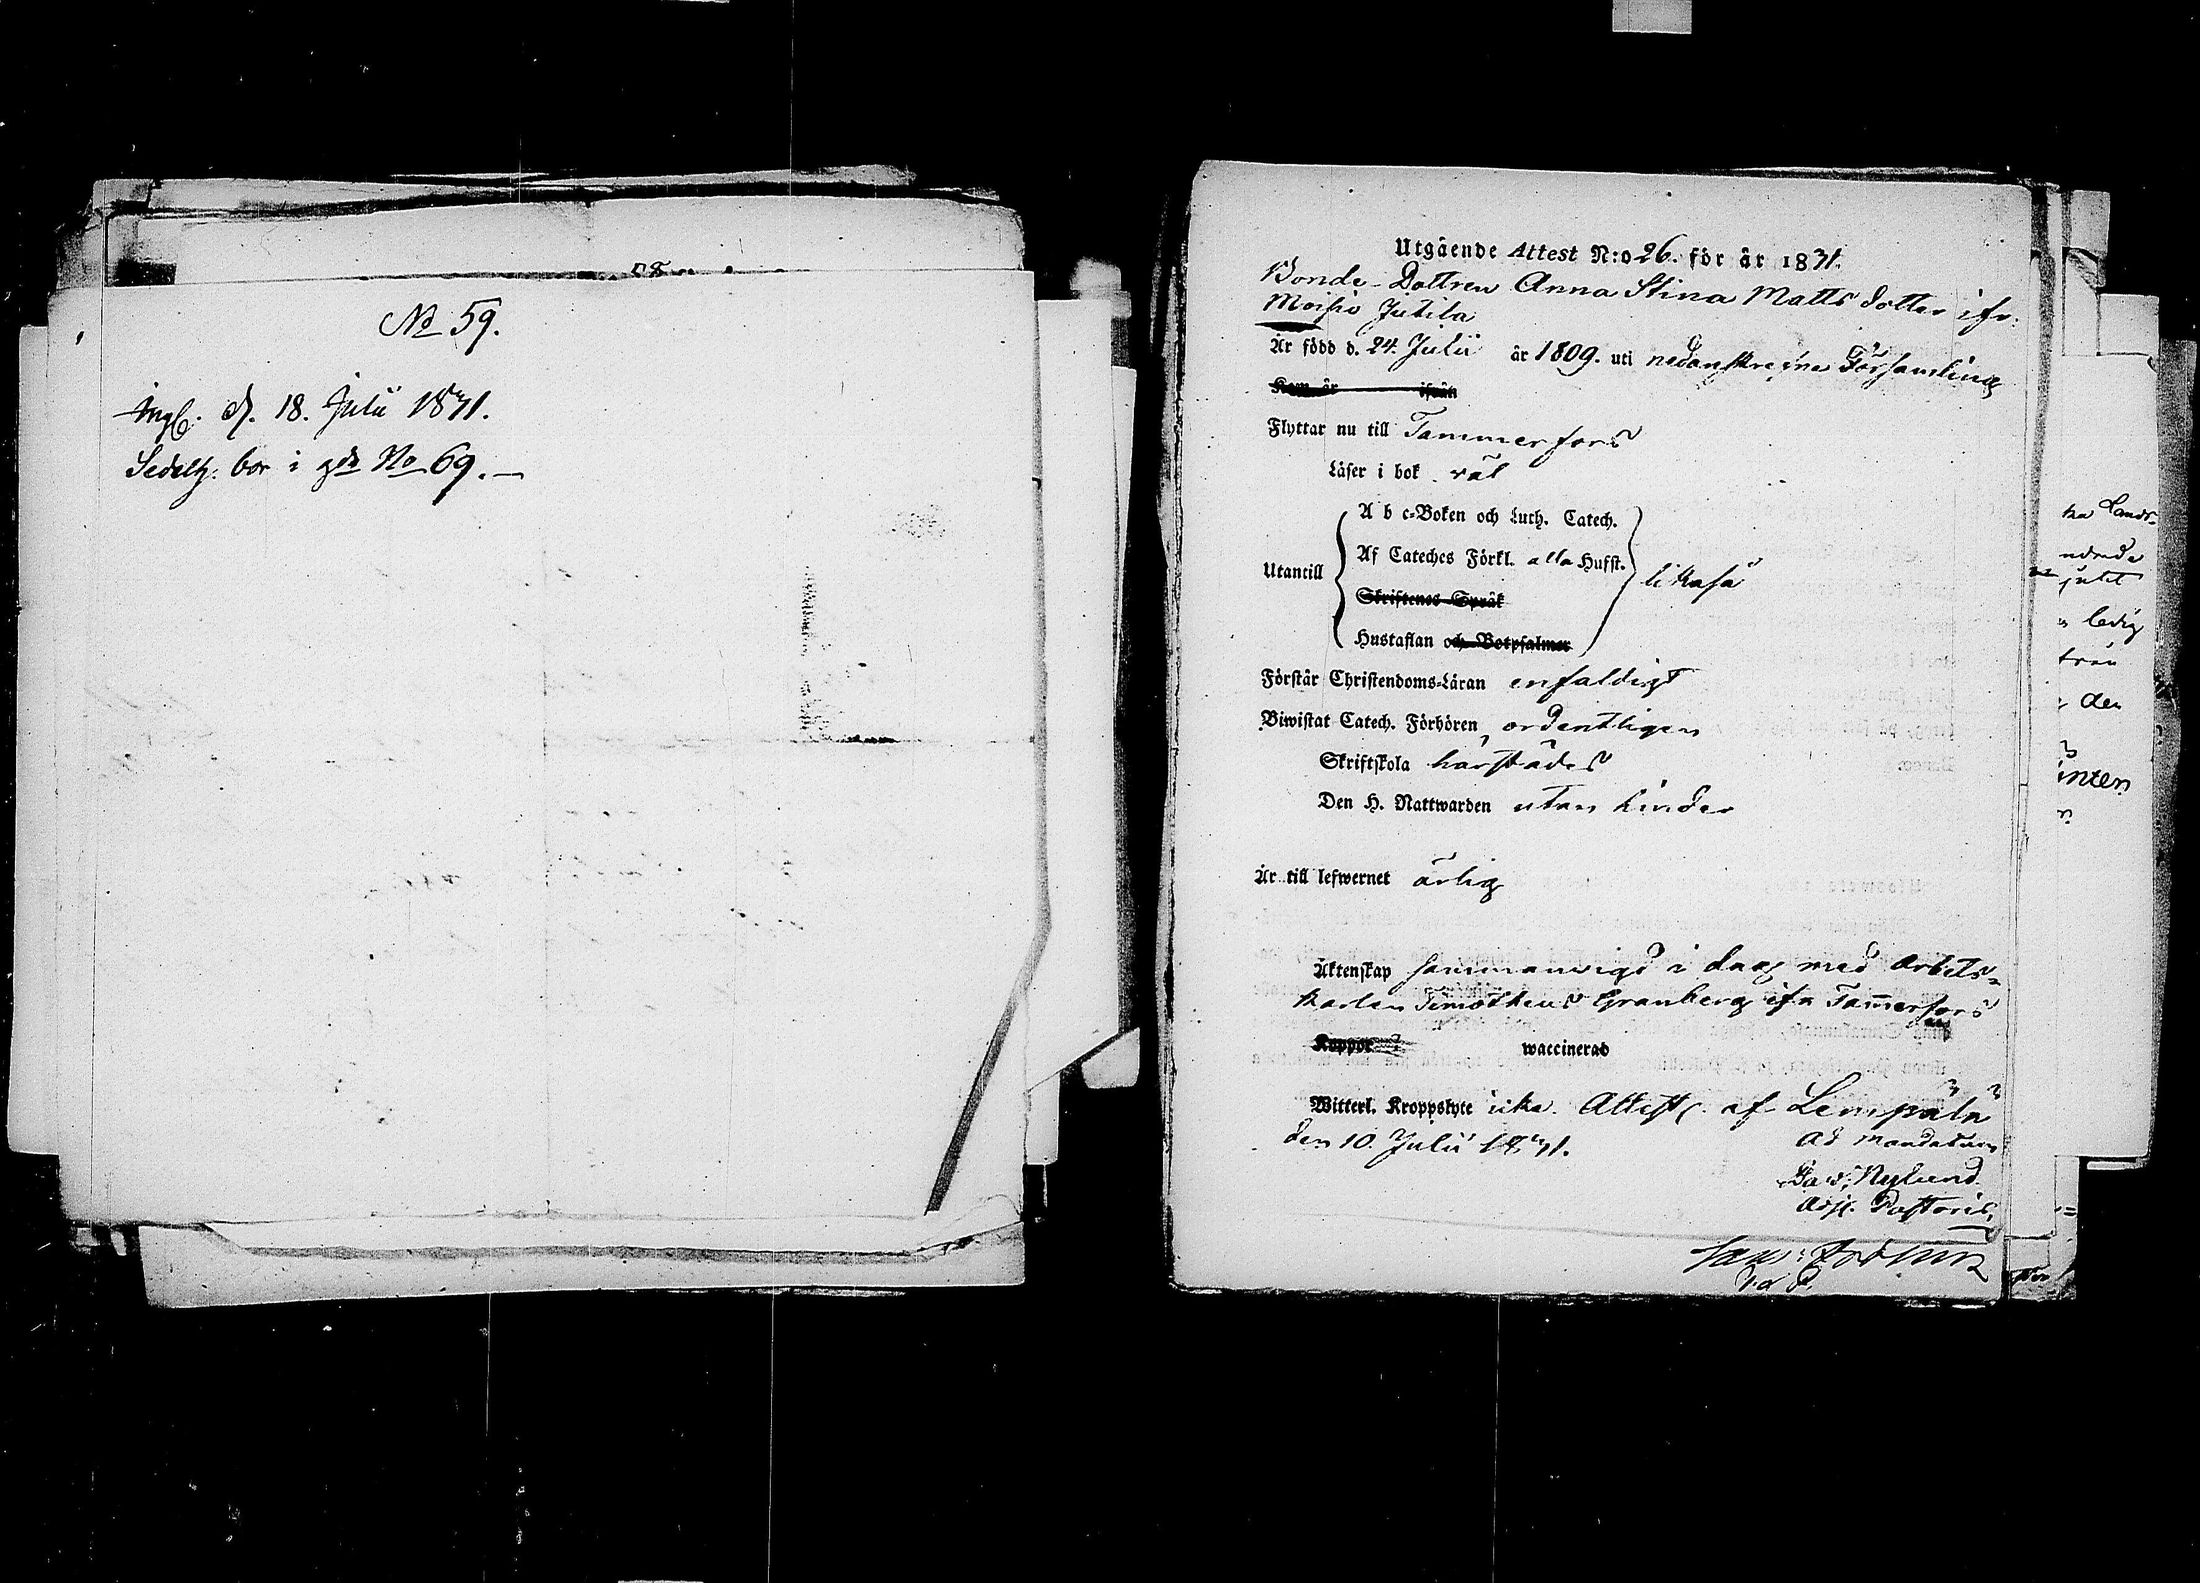 No 59.
Ingl. d. 18. Julii 1831.
Sedelh: bor i gdn No 69. —
Utgående Attest N:o 26. för år 1831.
Bonde-Dottren Anna Stina Matts dotter ifr:
Moisio Jutila
Är född d. 24. Julii år 1809. uti nedanskrefne Församling
Kom år ifrån
Flyttar nu till Tammerfors
Läser i bok väl
A b c-Boken och Luth. Catech.
Af Cateches Förkl. alla Hufst.
Utantill likaså
Skriftenes Språk
Hustaflan och Botpsalmer
Förstår Christendoms-Läran enfaldigt
Biwistat Catech. Förhören ordentligen
Skriftskola härstädes
Den H. Nattwarden utan hinder
Är till lefwernet ärlig
Äktenskap sammanvigd i dag med Arbets-
karlen Timotheus Granberg ifn Tam̄erfors
Koppor waccinerad
Witterl. Kroppslyte icke. Attest. af Lempälä
den 10. Julii 1831. Ad mandatum
Dav; Nylund
Adj. Pastoris,
ka Lands-
ledig
den